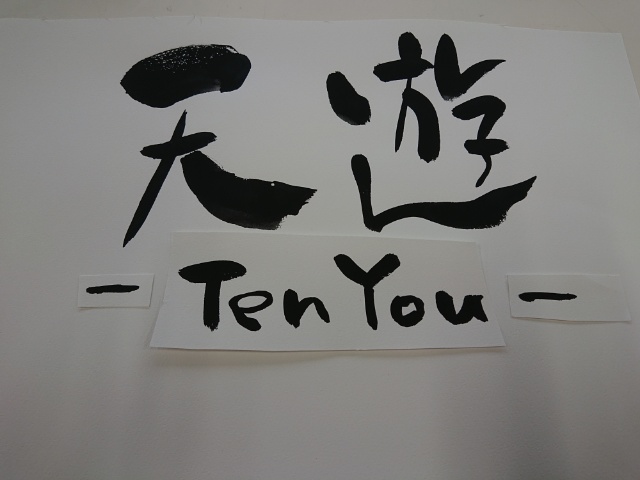 天遊
- Ten You -